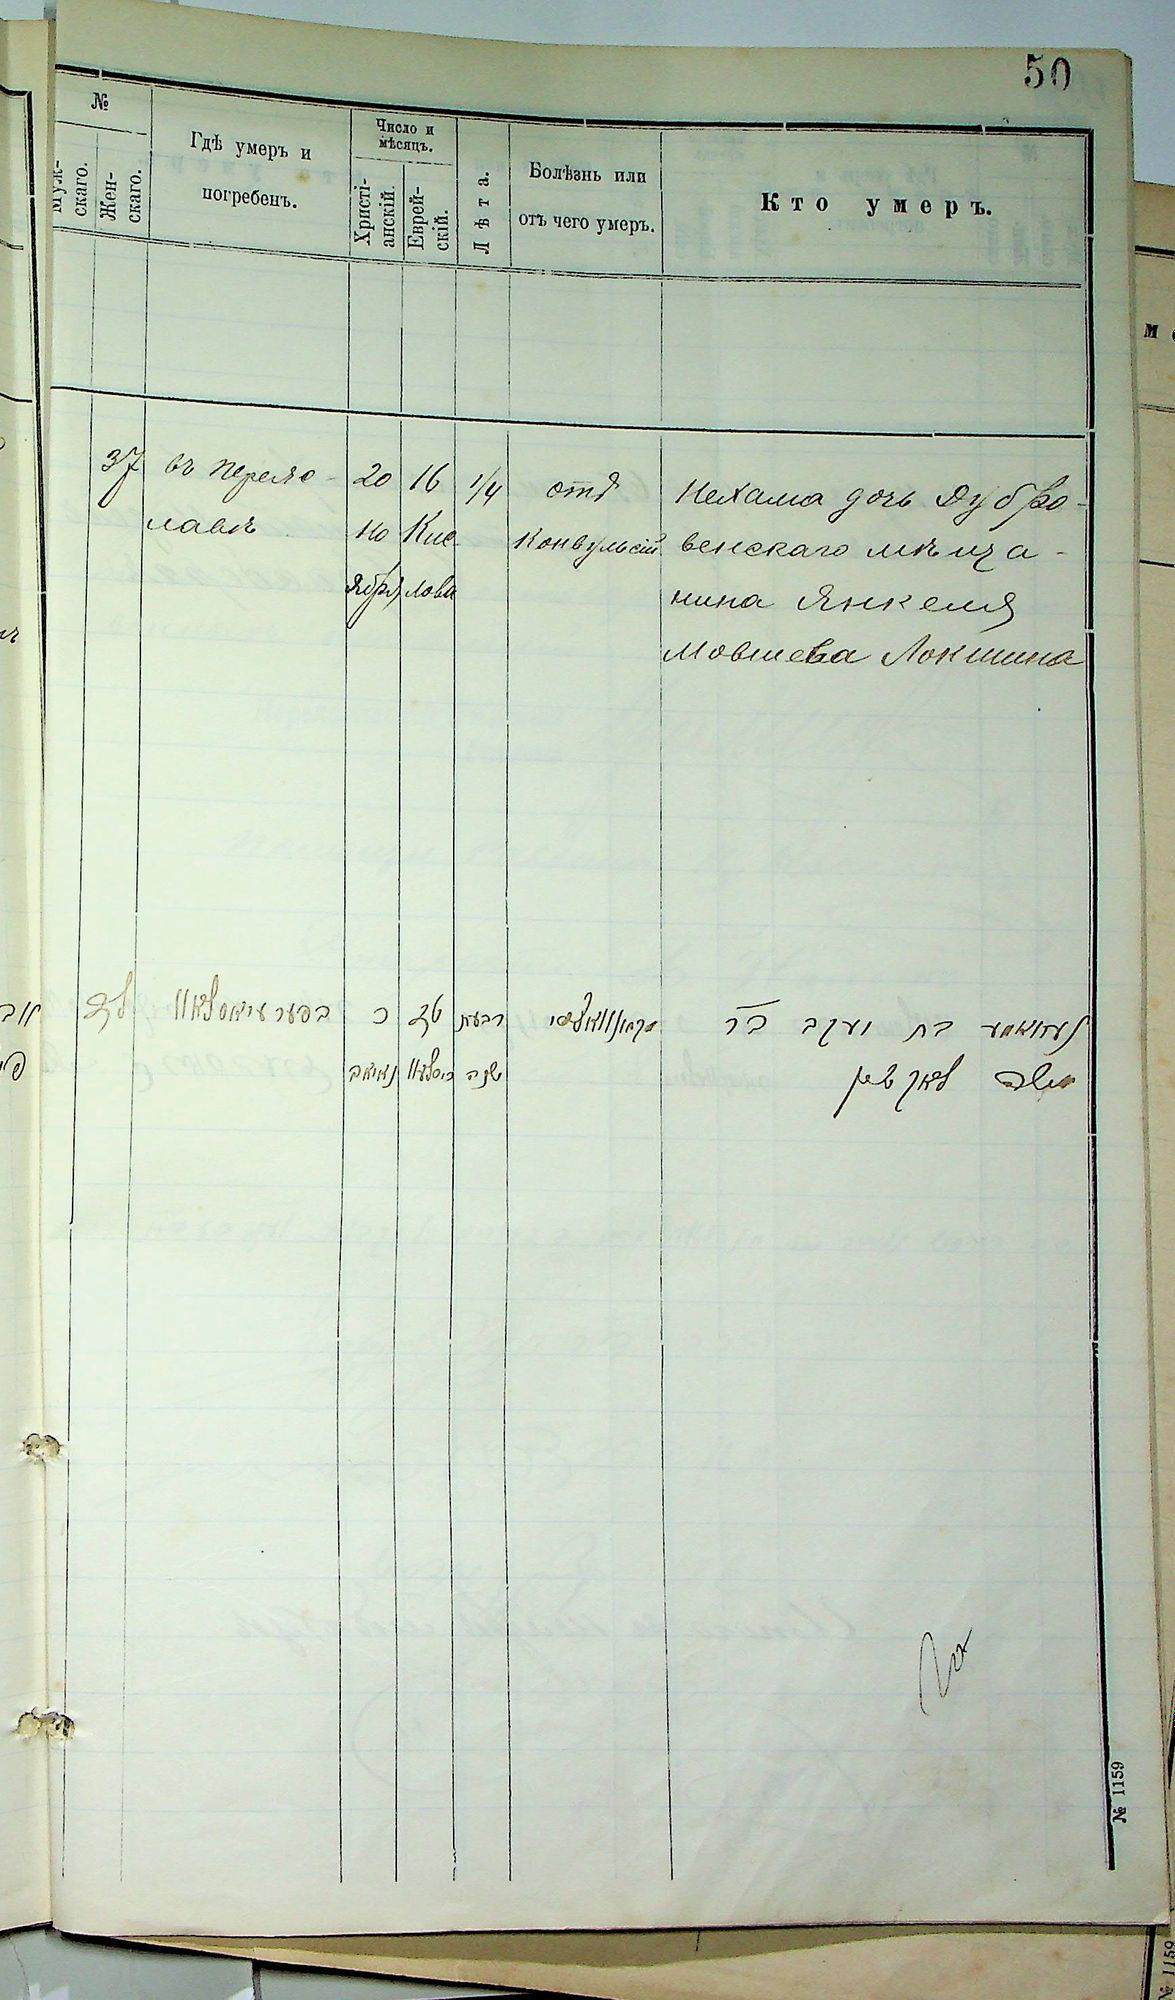 50
№
Муж-
скаго.
Жен-
скаго.
Гдѣ умеръ и
погребенъ.
Число и
мѣсяцъ.
Христі-
анскій.
Еврей-
скій.
Лѣта.
Болѣзнь или
отъ чего умеръ.
Кто умеръ.
37
въ Перея-
славѣ
20
Но
ября
16
Кис
лова
1/4
отъ
конвульсій
Нехама дочь Дубро-
венскаго мѣща-
нина Янкеля
Мовшева Локшина
לז
כ
נאיאב
טז
כיסלעוו
רבעת
שנה
נעחאמע בת יעקב בר
משה לאקשין
№ 1159
№ 1159